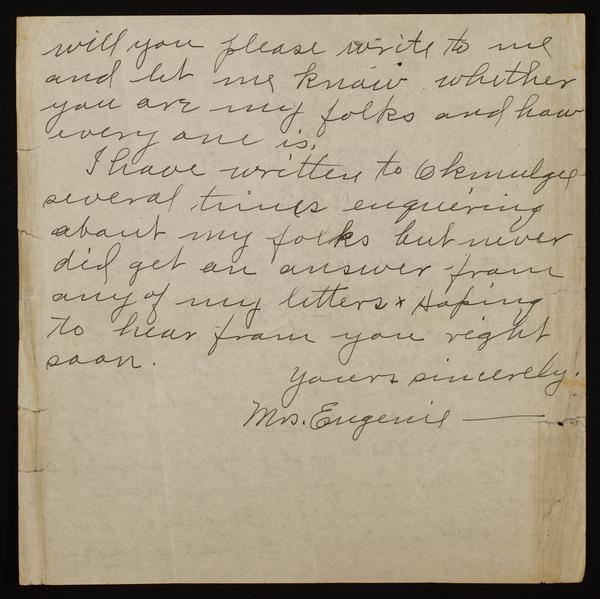 will you please write to me
and let me know whether
you are my folks and how
every one is.
I have written to Okmulgee
several times enquiring
about my folks but never
did get an answer from
any of my letters & Hoping
to hear from you right
soon.
yours sincerely.
Mrs. Eugenie —